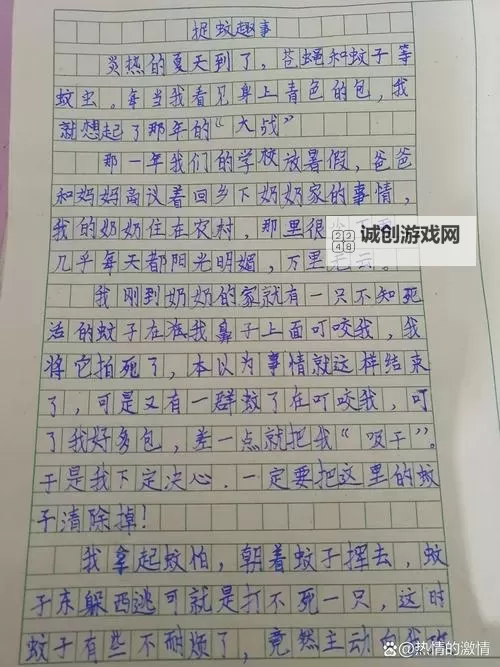 捉蚊趣事
炎热的夏天到了，苍蝇和蚊子等
蚊虫。每当我看见身上青色的包，我
就想起了那年的“大战”
那一年我们的学校放暑假，爸爸
和妈妈商议着回乡下奶奶家的事情，
我的奶奶住在农村，那里很
诚创游戏网
几乎每天都阳光明媚，万里无云。
我刚到奶奶的家就有一只不知死
活的蚊子在我鼻子上面叮咬我，我
将它拍死了，本以为事情就这样结束
了，可是又有一群蚊了在叮咬我，叮
了我好多包，差一点就把我“吸干”。
于是我下定决心．一定要把这里的蚊
子清除掉！
我拿起蚊怕，朝着蚊子挥去，蚊
子东躲西逃可就是打不死一只，这时
蚊子有些不耐烦了，竟然主动
@热情的激情